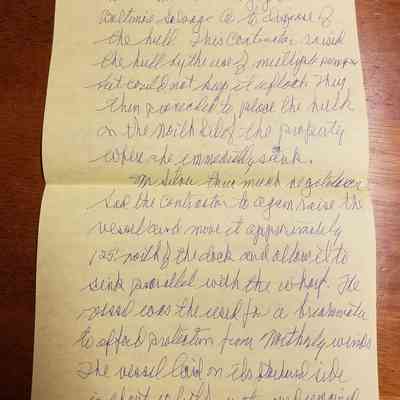 Baltimore Salvage Co to dispose of
the hull. This Contractor raised
the hull by the use of multiple pumps
but could not keep it afloat. They
then proceeded to place the hulk
on the North Side of the property
where she immediatly sank.
Mr Silver thru much negotiations
had the contractor to again raise the
vessel and move it approximately
125' north of the dock and allow it to
sink parallel with the wharf. The
vessel was the used for a breakwater
to afford protection from Northerly winds
The vessel laid on its side
in short